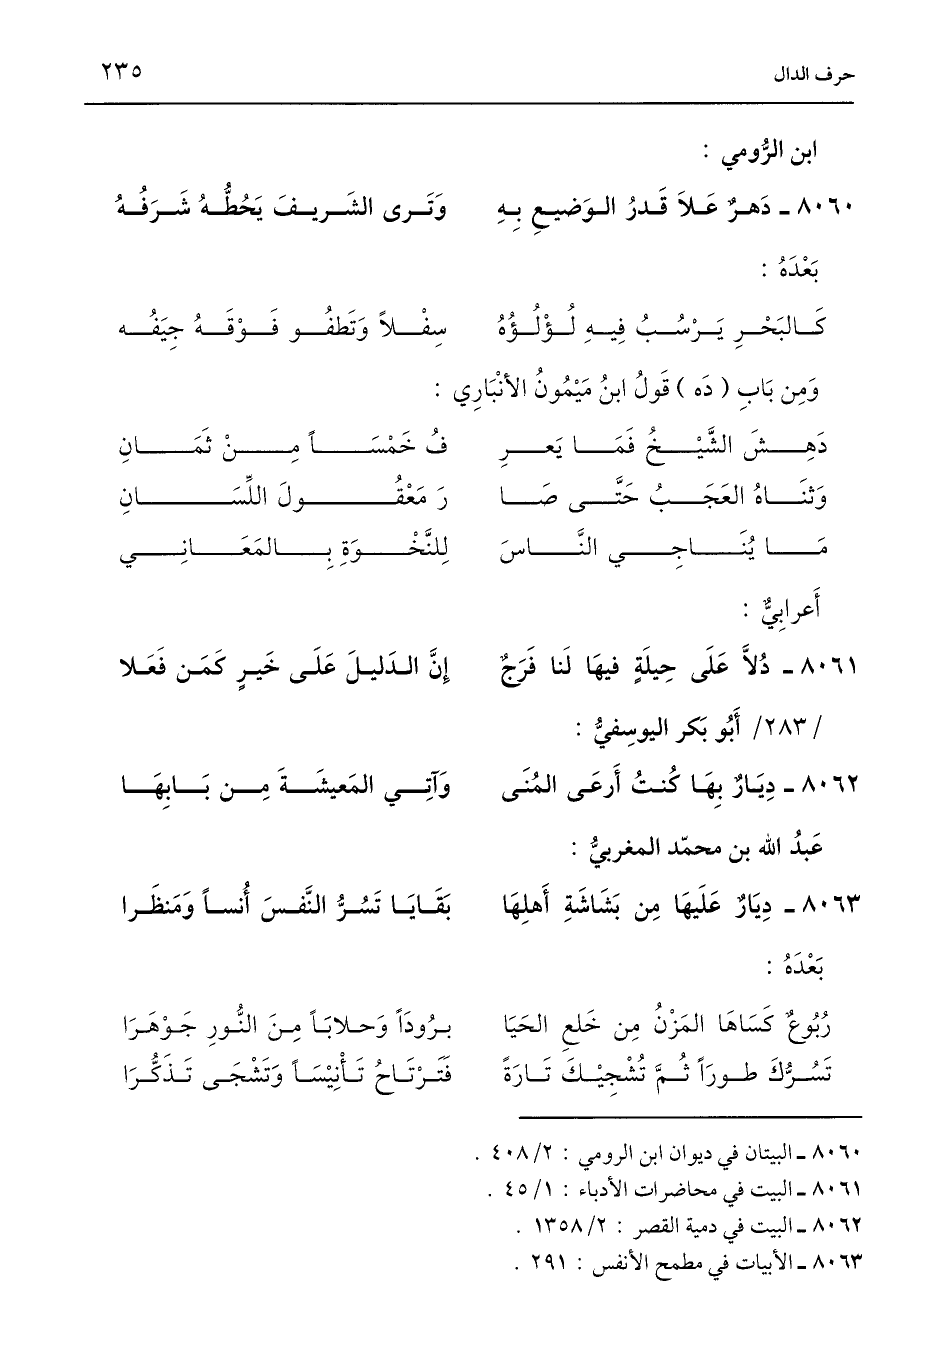 حرف الدال ٢٣٥
ابن الرُّومي :
٨٠٦٠ ـ دَهرٌ عَلاَ قَدرُ الوَضيعِ بِهِ وَتَرى الشَريفَ يَحُطُّهُ شَرَفُهُ
بَعْدَهُ :
كَالبَحْرِ يَرْسُبُ فِيهِ لُؤْلُؤُهُ سِفْلاً وَتَطفُو فَوْقَهُ جِيَفُه
وَمِن بَابِ ( دَه ) قَولُ ابنُ مَيْمُونُ الأنْبَارِي :
دَهِشَ الشَّيْخُ فَمَا يَعرِ فُ خَمْسَاً مِنْ ثَمَانِ
وَثنَاهُ العَجَبُ حَتَّى صَا رَ مَعْقُولَ اللِّسَانِ
مَا يُنَاجِي النَّاسَ لِلنَّخْوَةِ بِالمَعَانِي
أَعرابِيٌّ :
٨٠٦١ ـ دُلاَّ عَلَى حِيلَةٍ فيهَا لَنا فَرَجٌ إنَّ الدَليلَ عَلَى خَيرٍ كَمَن فَعَلا
/ ٢٨٣/ أَبُو بَكر اليوسِفيُّ :
٨٠٦٢ ـ دِيَارٌ بِهَا كُنتُ أَرعَى المُنَى وَآتِي المَعيشَةَ مِن بَابِهَا
عَبدُ الله بن محمّد المغربيُّ :
٨٠٦٣ ـ دِيَارٌ عَلَيهَا مِن بَشَاشَةِ أَهلِهَا بَقَايَا تَسُرُّ النَّفسَ أُنساً وَمَنظَرا
بَعْدَهُ :
رُبُوعٌ كَسَاهَا المَزْنُ مِن خَلعِ الحَيَا برُودَاً وَحلابَاً مِنَ النُّورِ جَوْهَرَا
تَسُرُّكَ طورَاً ثُمَّ تُشْجِيْكَ تَارَةً فَتَرْتَاحُ تَأْنِيْسَاً وَتَشْجَى تَذَكُّرَا
٨٠٦٠ ـ البيتان في ديوان ابن الرومي : ٤٠٨/٢ .
٨٠٦١ ـ البيت في محاضرات الأدباء : ٤٥/١ .
٨٠٦٢ ـ البيت في دمية القصر : ١٣٥٨/٢ .
٨٠٦٣ ـ الأبيات في مطمح الأنفس : ٢٩١ .